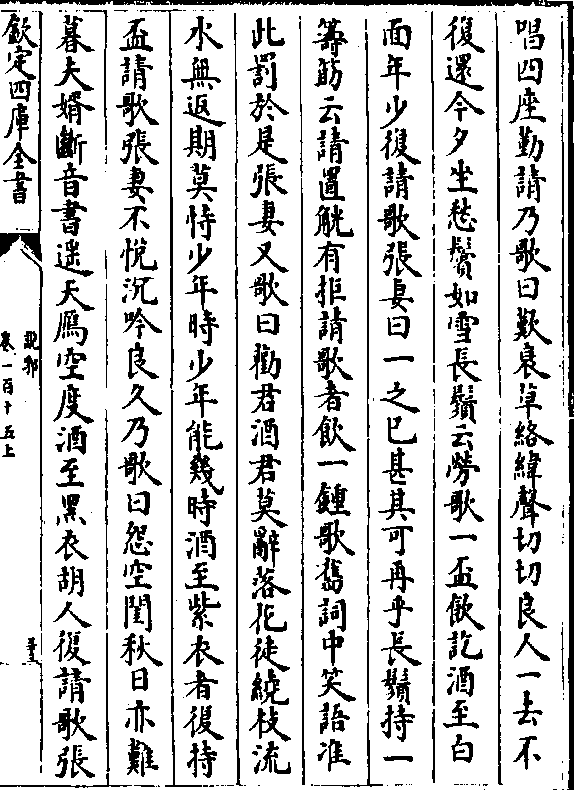 唱四座勤請乃歌曰歎衰草絡緯聲切切良人一去不
復還今夕坐愁鬢如雪長鬚云勞歌一盃飲訖酒至白
面年少復請歌張妻曰一之已甚其可再乎長鬚持一
籌筯云請置觥有拒請歌者飲一鍾歌舊詞中笑語准
此罰於是張妻又歌曰勸君酒君莫辭落花徒繞枝流
水無返期莫恃少年時少年能幾時酒至紫衣者復持
盃請歌張妻不悅沉吟良久乃歌曰怨空閨秋日亦難
暮夫婿斷音書遥天鴈空度酒至黑衣胡人復請歌張
欽定四庫全書
說郛
卷一百十五上